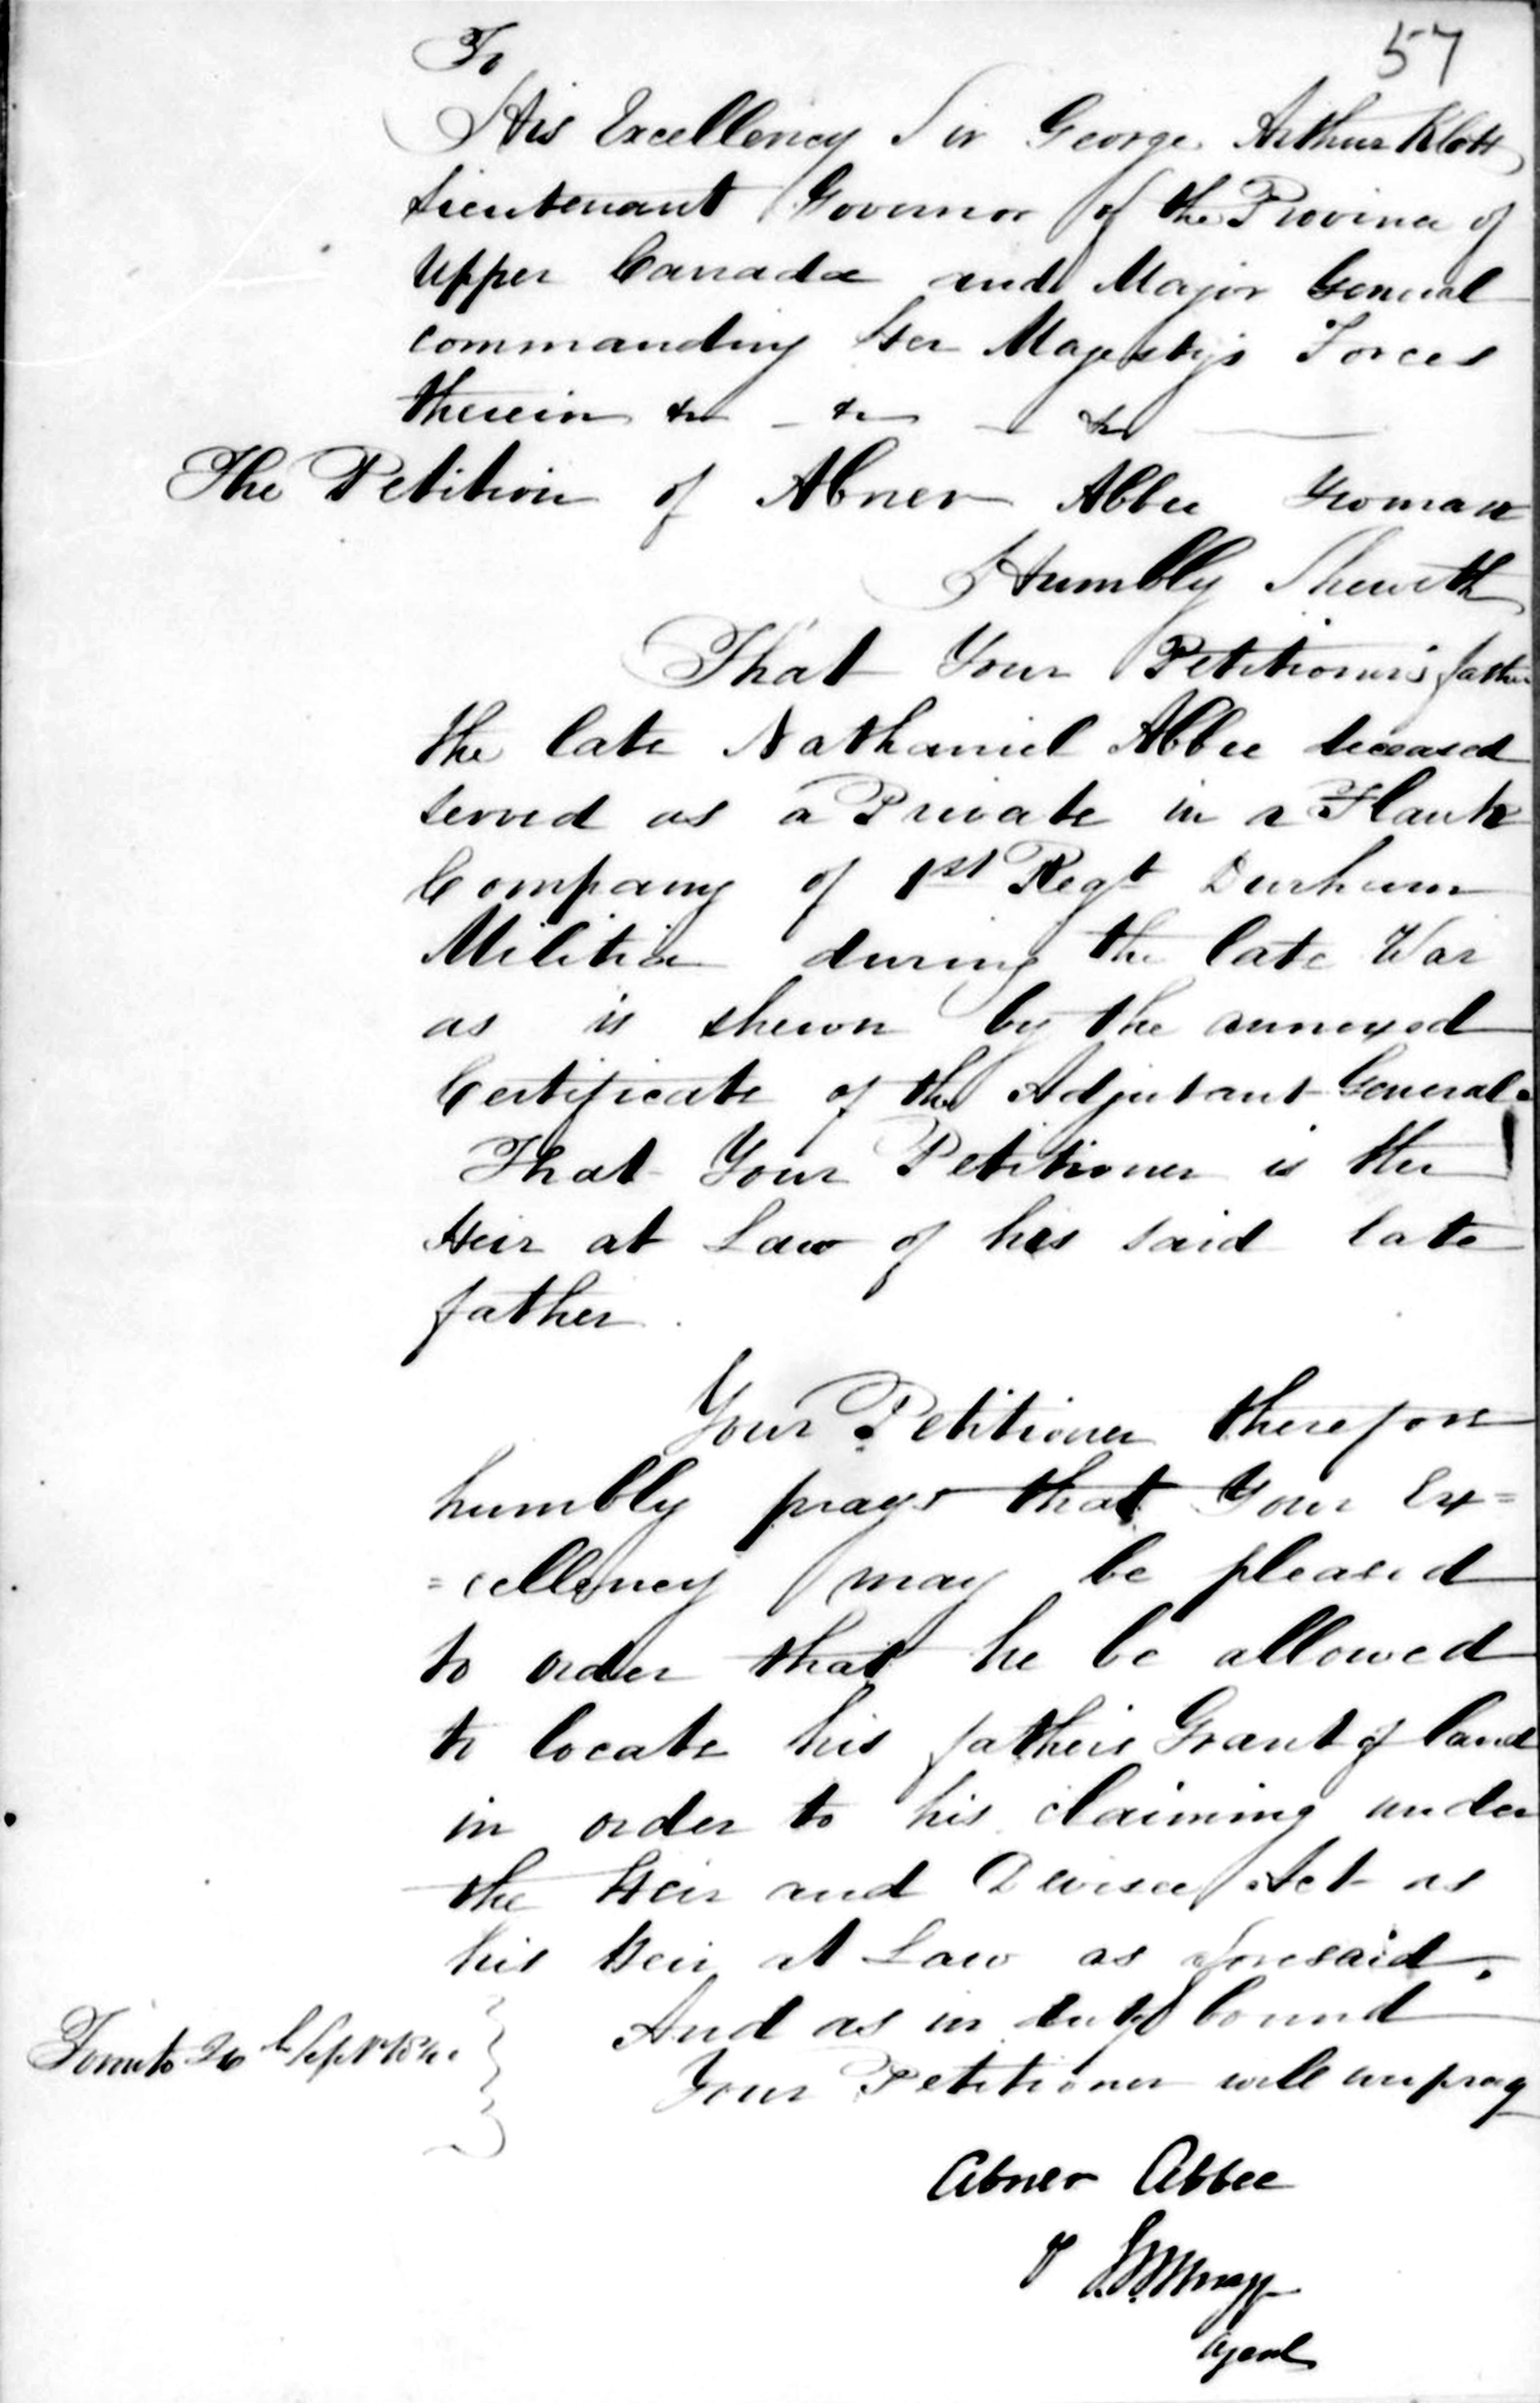 57
To
His Excellency Sir George Arthur
Lieutenant Governor of the Province of
Upper Canada and Major General
commanding Her Majesty's Forces
therein &c - &c - &c
The Petition of Abner Abbee Yeoman
Humbly Sheweth
That Your Petitioner's father
the late Nathaniel Abbee deceased
served as a Private in a Flank
Company of 1st Regt Durham
Militia during the late War
as is shewn by the annexed
Certificate of the Adjutant General.
That Your Petitioner is the
Heir at Law of his said late
father.
Your Petitioner therefore
humbly prays that Your Ex=
=cellency may be pleased
to order that he be allowed
to locate his fathers Grant of land
in order to his claiming under
the Heir and Devisee Act as
his Heir at Law as aforesaid.
And as in duty bound
Your Petitioner will ever pray
Toronto Sept
Abner Abbee
Agent